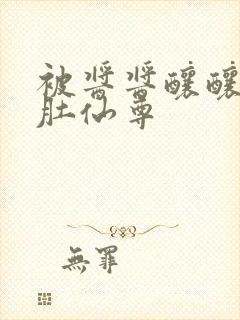 被醬醬釀釀
肚仙尊
無罪